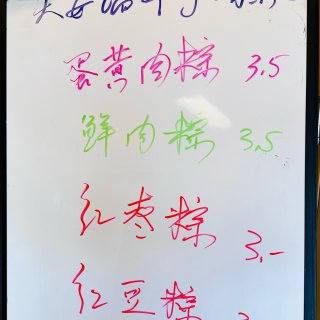 蛋黄肉粽 3.5
鲜肉粽 3.5
红枣粽 3.-
红豆粽